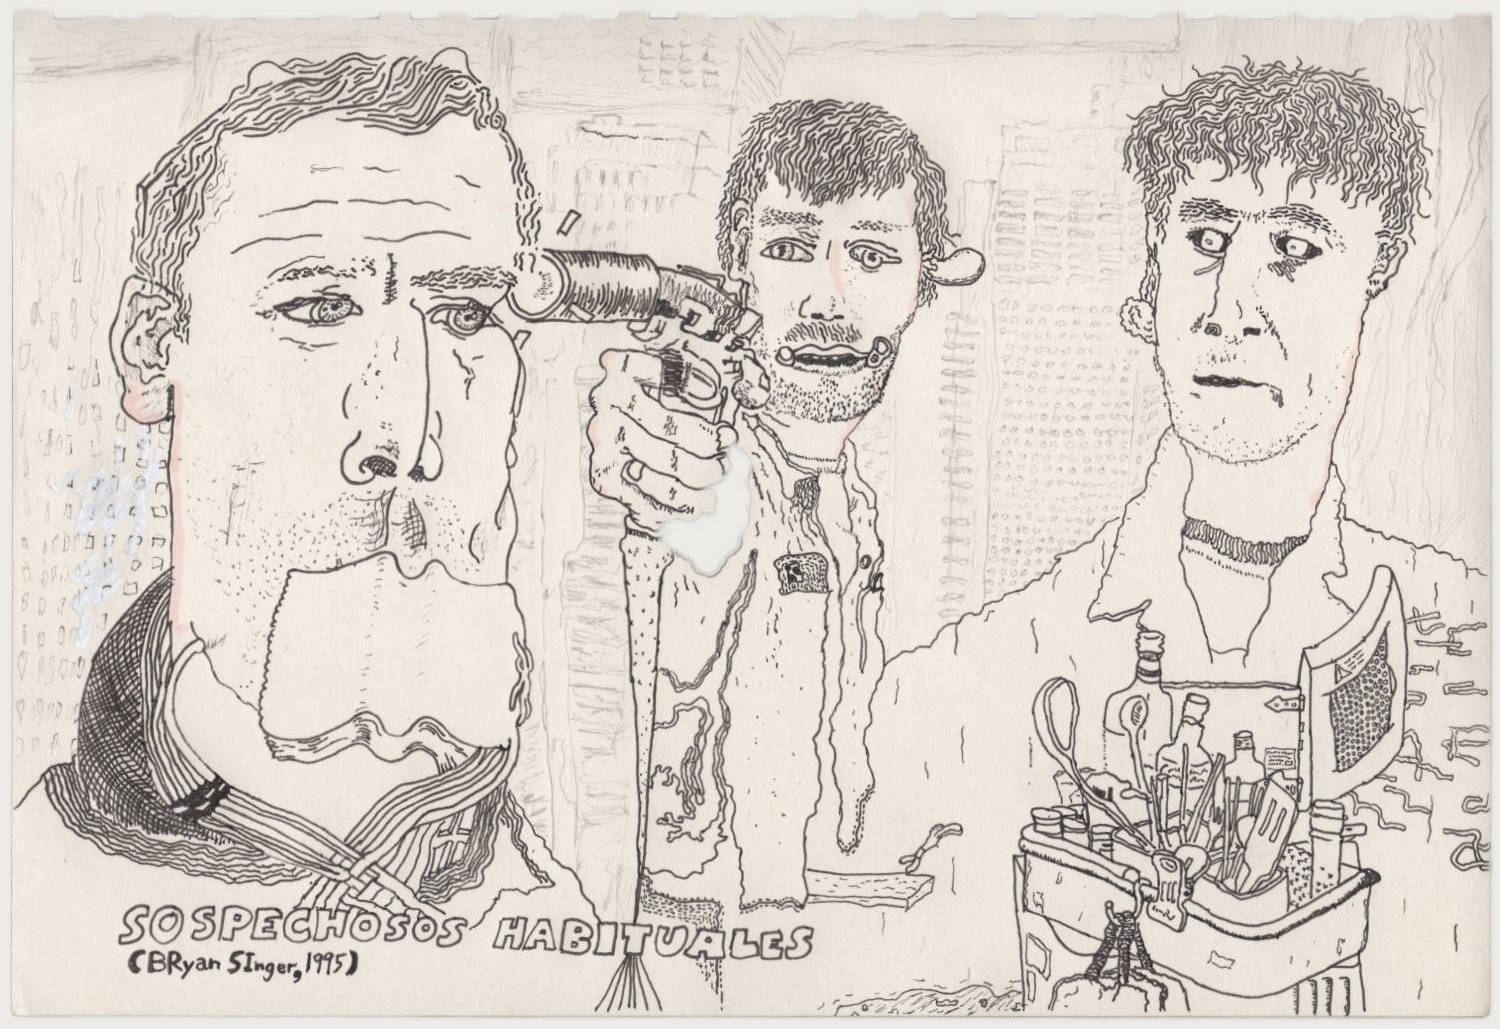 SOSPECHOSOS HABITUALES
(BRyan SInger, 1995)